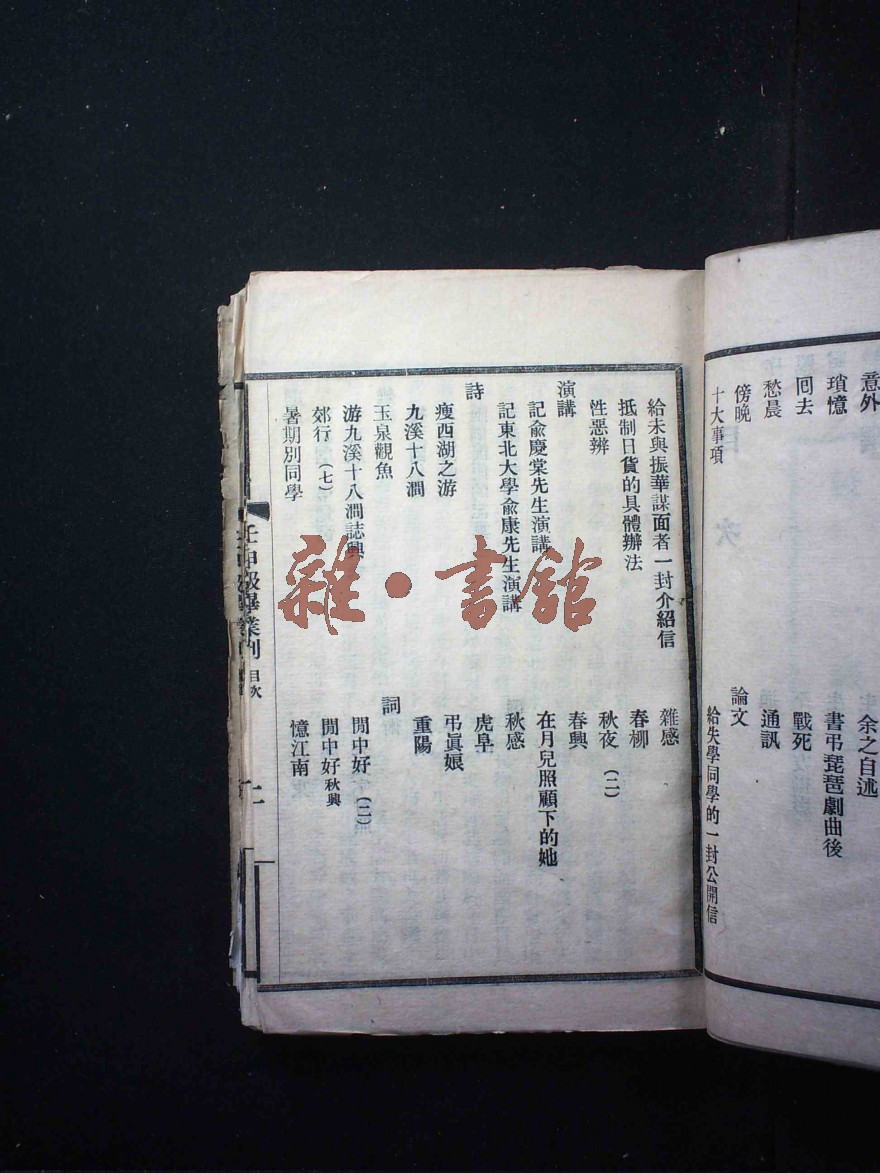 意外
瑣憶
回去
愁晨
傍晚
十大事項
余之自述
書弔琵琶劇曲後
戰死
通訊
論文
給失學同學的一封公開信
給未與振華謀面者一封介紹信
抵制日貨的具體辦法
性惡辨
演講
記俞慶棠先生演講
記東北大學俞康先生演講
詩
瘦西湖之游
九溪十八澗
玉泉觀魚
游九溪十八澗誌興
郊行（七）
暑期別同學
雜感
春柳
秋夜（二）
春興
在月兒照顧下的她
秋感
虎阜
弔眞娘
重陽
詞
閒中好（二）
閒中好秋興
憶江南
壬申級畢業刊 目次
二
雜·書館